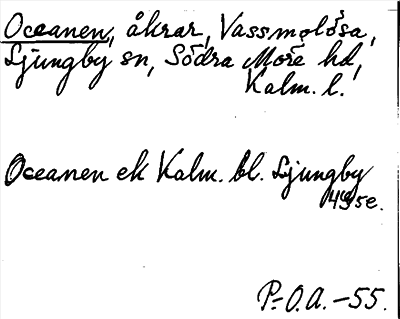 Oceanen, åkrar, Vassmolösa,
Ljungby sn, Södra Möre hd,
Kalm. l.
Oceanen ek Kalm. bl. Ljungby
4G5e.
P-O.A. -55.